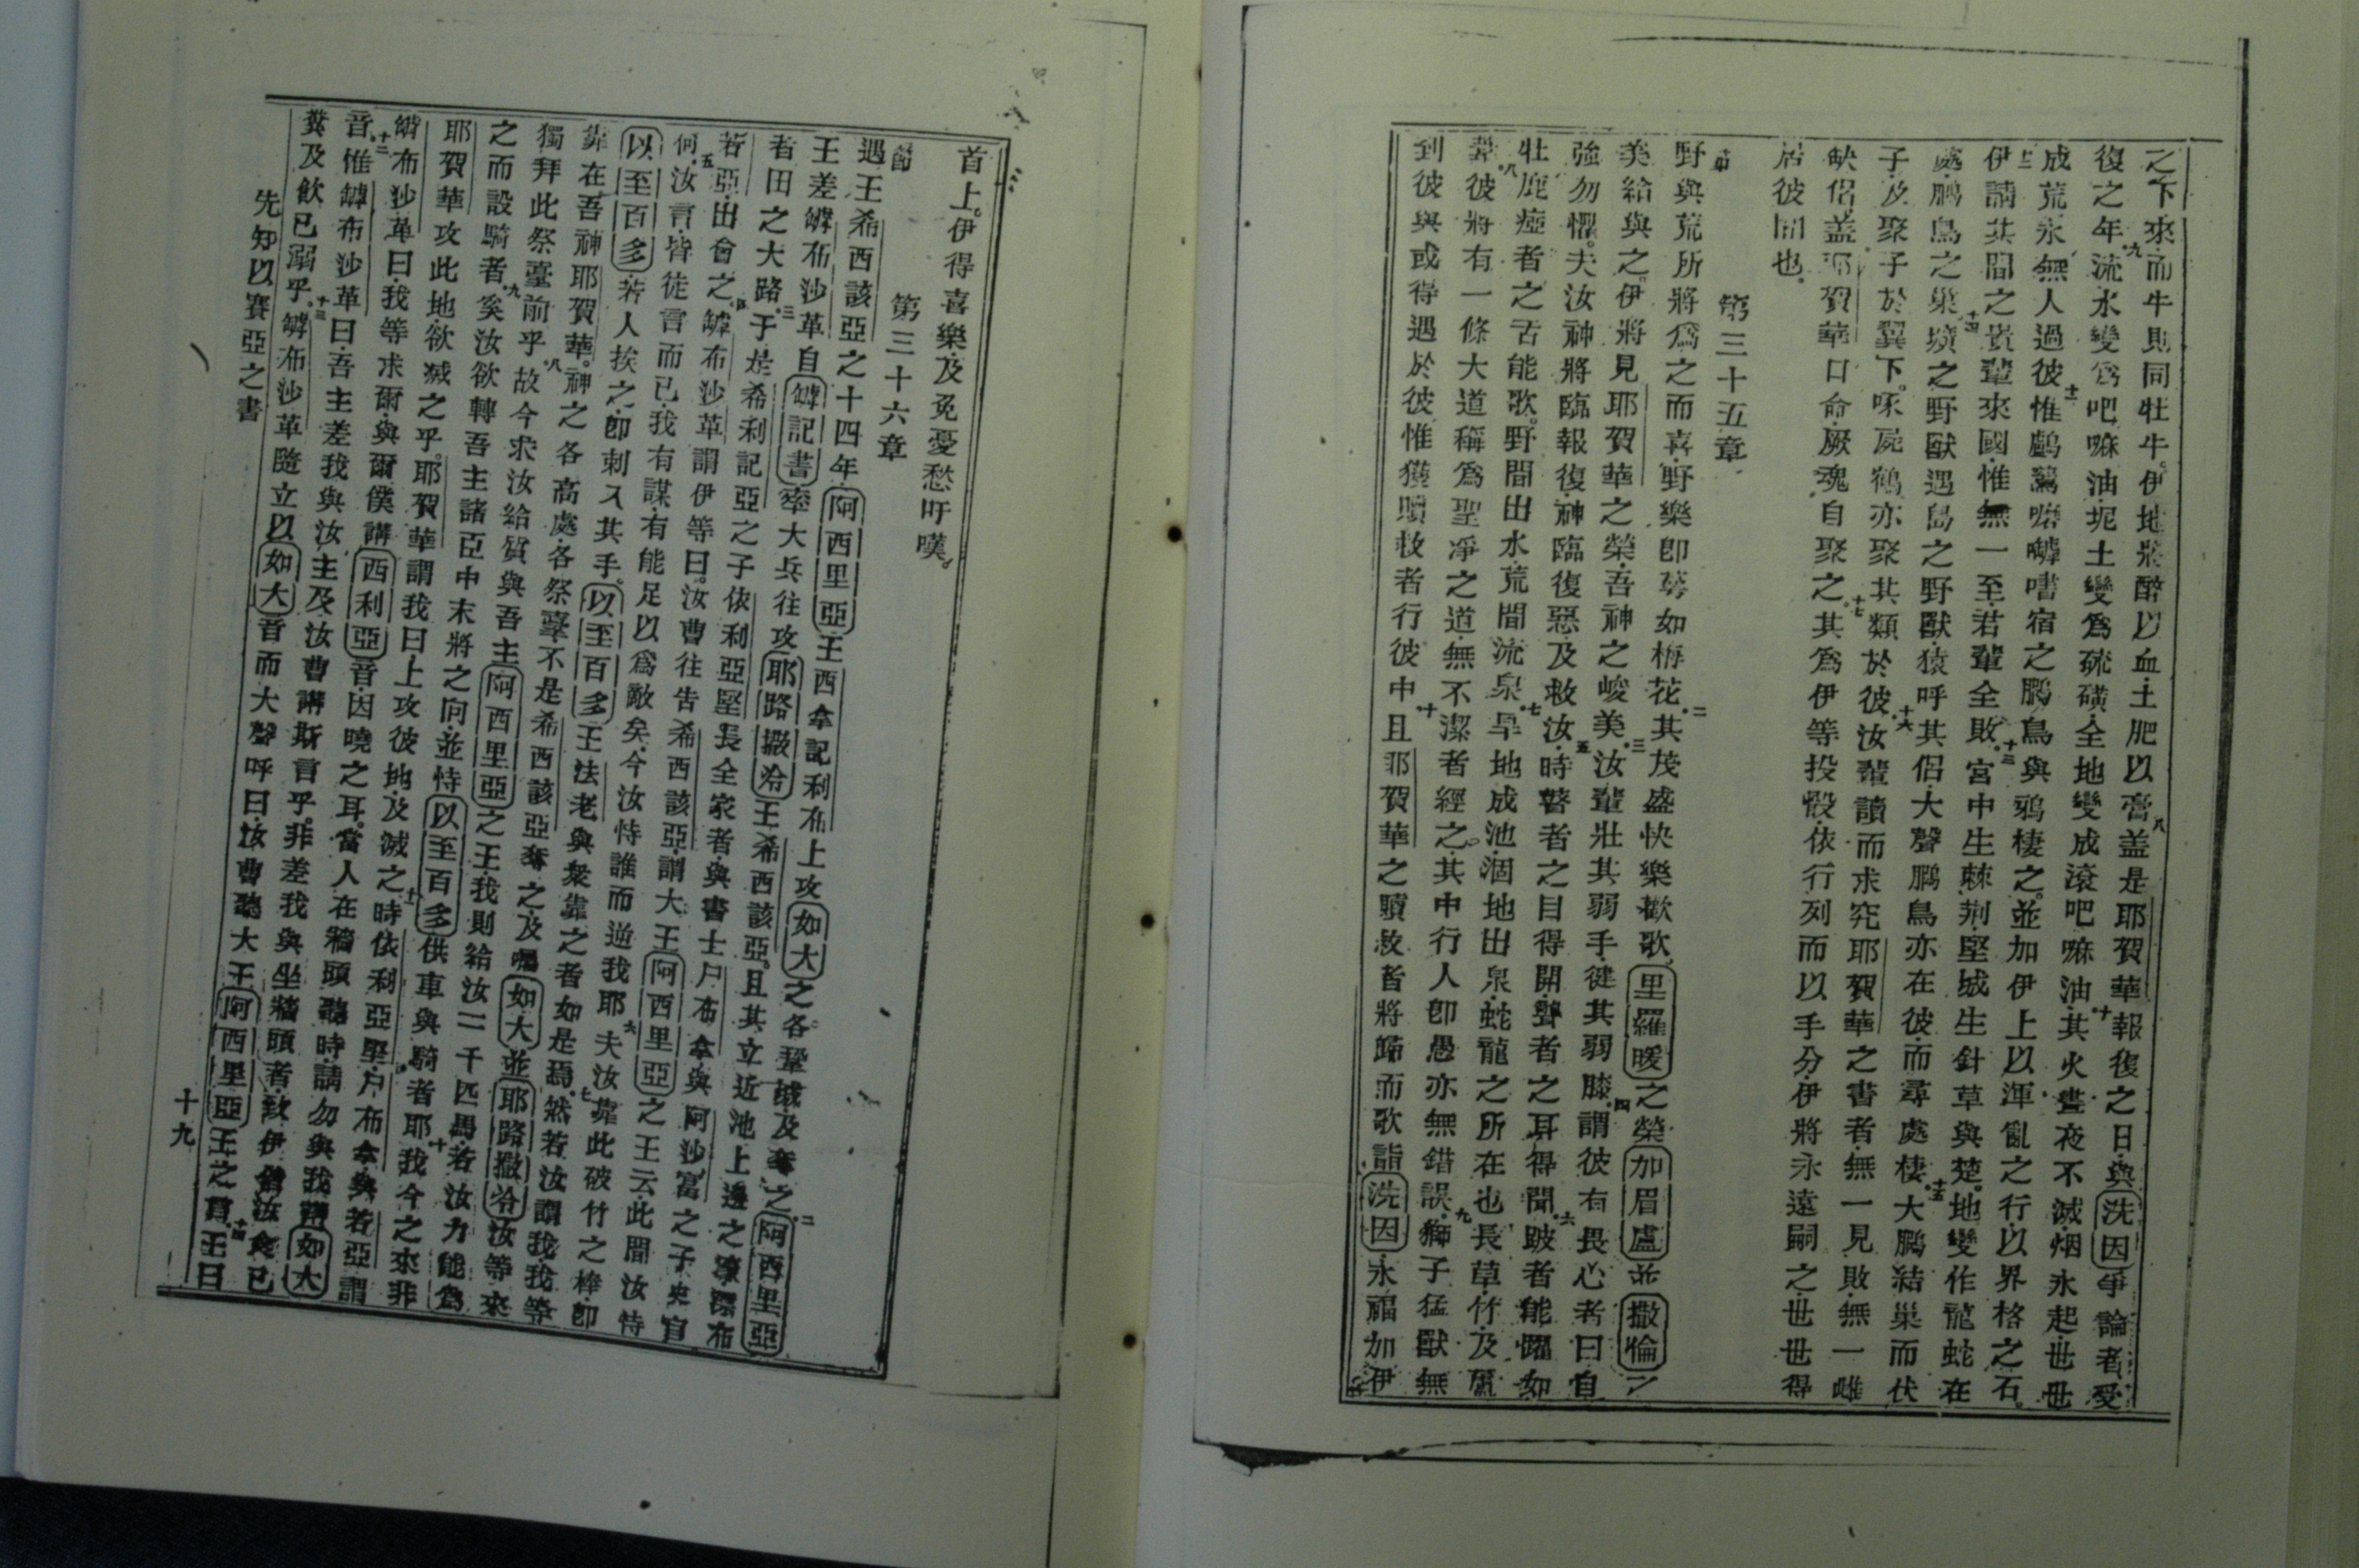 之下來而牛則同牡牛伊地將醉以血土肥以膏八盖是耶賀華報復之日與洗因爭論者受
復之年九流水變爲吧嘛油坭土變爲硫磺全地變成滾吧嘛油十其火晝夜不滅烟永起世世
成荒永無人過彼十一惟鸕鶿嘈宿之鵬鳥與鴉棲之並加伊上以渾亂之行以界格之石
十二伊請其間之貴輩來國惟無一至若輩全敗十三宮中生棘荆堅城生針草與楚地變作龍蛇在
處鵬鳥之巢十四曠之野獸遇島之野獸猿呼其侶大聲鵬鳥亦在彼而尋處棲十五大鵬結巢而伏
子及聚子於翼下啄屍鶴亦聚其類於彼十六汝輩讀而求究耶賀華之書者無一見敗無一雌
缺侶蓋耶賀華口命厥魂自聚之十七其爲伊等投骰依行列而以手分伊將永遠嗣之世世得
居彼間也
第三十五章
節
野與荒所將爲之而喜野樂卽萼如梅花二其茂盛快樂歡歌里羅暖之榮加眉盧並撒倫之
美給與之伊將見耶賀華之榮吾神之峻美三汝輩壯其弱手健其弱膝四謂彼有畏心者曰自
強勿懼夫汝神將臨報復神臨復惡及救汝五時瞽者之目得開聾者之耳得聞六跛者能躍如
牡鹿瘂者之舌能歌野間出水荒間流泉七旱地成池涸地出泉蛇龍之所在也長草竹及蘆
葦八彼將有一條大道稱爲聖淨之道無不潔者經之其中行人卽愚亦無錯誤九獅子猛獸無
到彼與或得遇於彼惟獲贖救者行彼中十且耶賀華之贖救者將歸而歌詣洗因永福加伊
首上伊得喜樂及免憂愁吁嘆
第三十六章
節
遇王希西該亞之十四年阿西里亞王西拿記利布上攻如大之各鞏城及奪之二阿西里亞
王差罅布沙革自罅記書率大兵往攻耶路撒冷王希西該亞且其立近池上邊之溝漂布
者田之大路三于是希利記亞之子依利亞堅長全家者與書士尸布拿與阿沙富之子史官
若亞出會之四罅布沙革謂伊等曰汝曹往告希西該亞謂大王阿西里亞之王云此間汝恃
何五汝言皆徒言而已我有謀有能足以爲敵矣今汝恃誰而逆我耶六夫汝靠此破竹之棒卽
以至百多若人挨之卽刺入其手以至百多王法老與衆靠之者如是焉七然若汝謂我我等
靠在吾神耶賀華神之各高處各祭臺不是希西該亞奪之及囑如大並耶路撒冷汝等來
獨拜此祭臺前乎八故今求汝給質與吾主阿西里亞之王我則給汝二千匹馬若汝力能爲
之而設騎者九奚汝欲轉吾主諸臣中末將之向並恃以至百多供車與騎者耶十我今之來非
耶賀華攻此地欲滅之乎耶賀華謂我曰上攻彼地及滅之十一時依利亞堅尸布拿與若亞謂
罅布沙革曰我等求爾與爾僕講西利亞音因曉之耳當人在牆頭聽時請勿與我講如大
音十二惟罅布沙革曰吾主差我與汝主及汝曹講斯言乎非差我與坐牆頭者致伊偕汝食已
糞及飲已溺乎十三罅布沙革隨立以如大音而大聲呼曰汝曹聽大王阿西里亞王之言十四王曰
先知以賽亞之書
十九